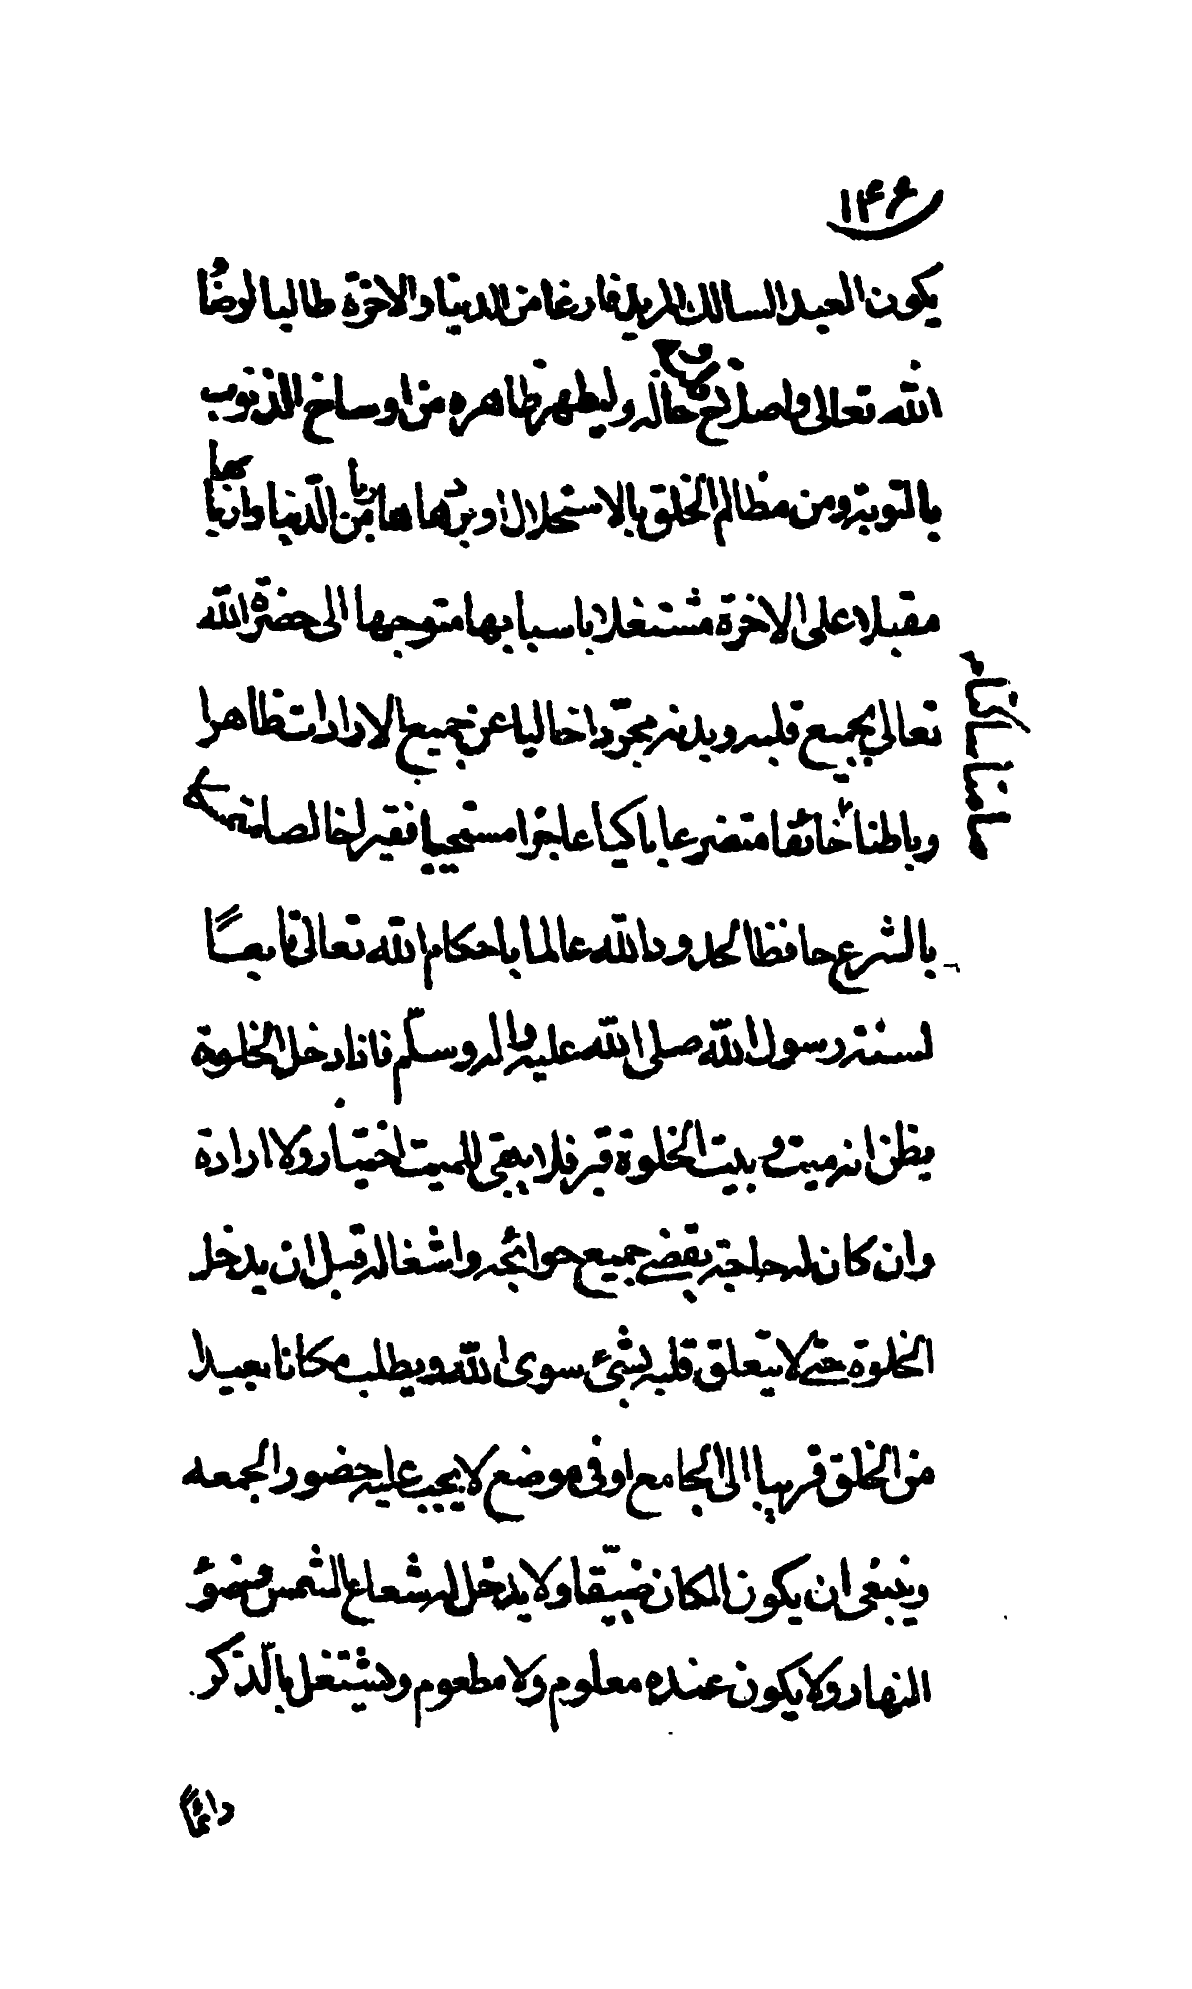 ۱۴۶
يكون العبد السالك المريد فارغا من الدنيا والاخرة طالبا لرضا
الله تعالى واصلاح حاله وليطهر ظاهره من اوساخ الذنوب
بالتوبة ومن مظالم الخلق بالاستحلال او بردها هاربا من الدنيا واربابها
مقبلا على الاخرة مشتغلا باسبابها متوجها الى حضرة الله
تعالى بجميع قلبه وبدنه مجردا خاليا عن جميع الارادات ظاهرا
وباطنا خائفا متضرعا باكيا عاجزا مستحييا فقيرا خالصا
بالشرع حافظا لحدود الله عالما باحكام الله تعالى تابعًا
لسنة رسول الله صلى الله عليه واله وسلّم فاذا دخل الخلوة
يظن انه ميت وبيت الخلوة قبر فلا يبقى للميت اختيار ولا ارادة
وان كان له حاجة يقضى جميع حوائجه واشغاله قبل ان يدخل
الخلوة حتى لا يتعلق قلبه بشئ سوى الله ويطلب مكانا بعيدا
من الخلق قريبا الى الجامع او فى موضع لا يجب عليه حضور الجمعه
وينبغى ان يكون المكان ضيّقا ولا يدخل له شعاع الشمس وضوء
النهار ولا يكون عنده معلوم ولا مطعوم ويشتغل بالذكر
دائمًا